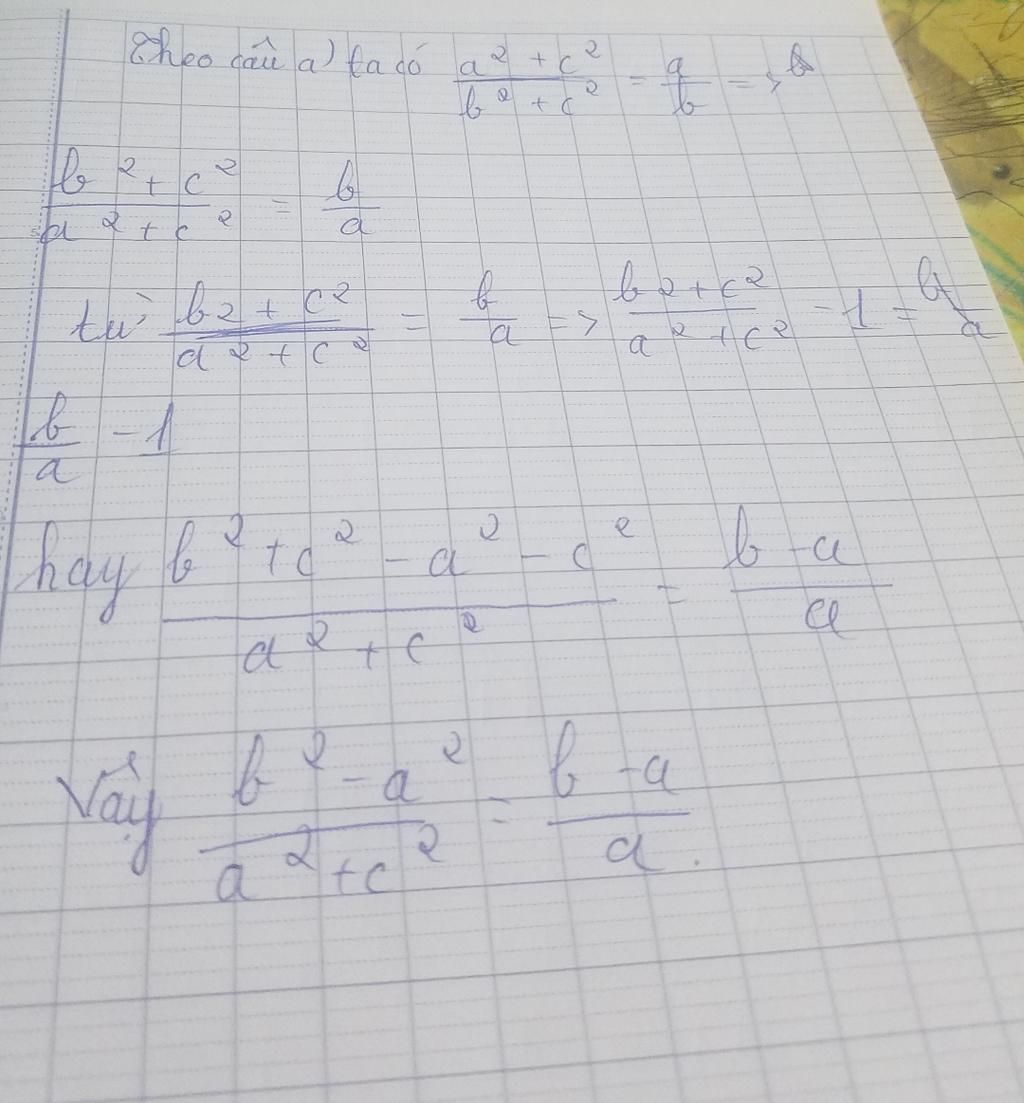 Theo câu a) ta có a² + c² / b² + c² = a / b =>
b² + c² / a² + c² = b / a
từ b2 + c² / a² + c² = b / a => b2 + c² / a² + c² - 1 =
b / a - 1
hay b² + c² - a² - c² / a² + c² = b - a / a
Vậy b² - a² / a² + c² = b - a / a.